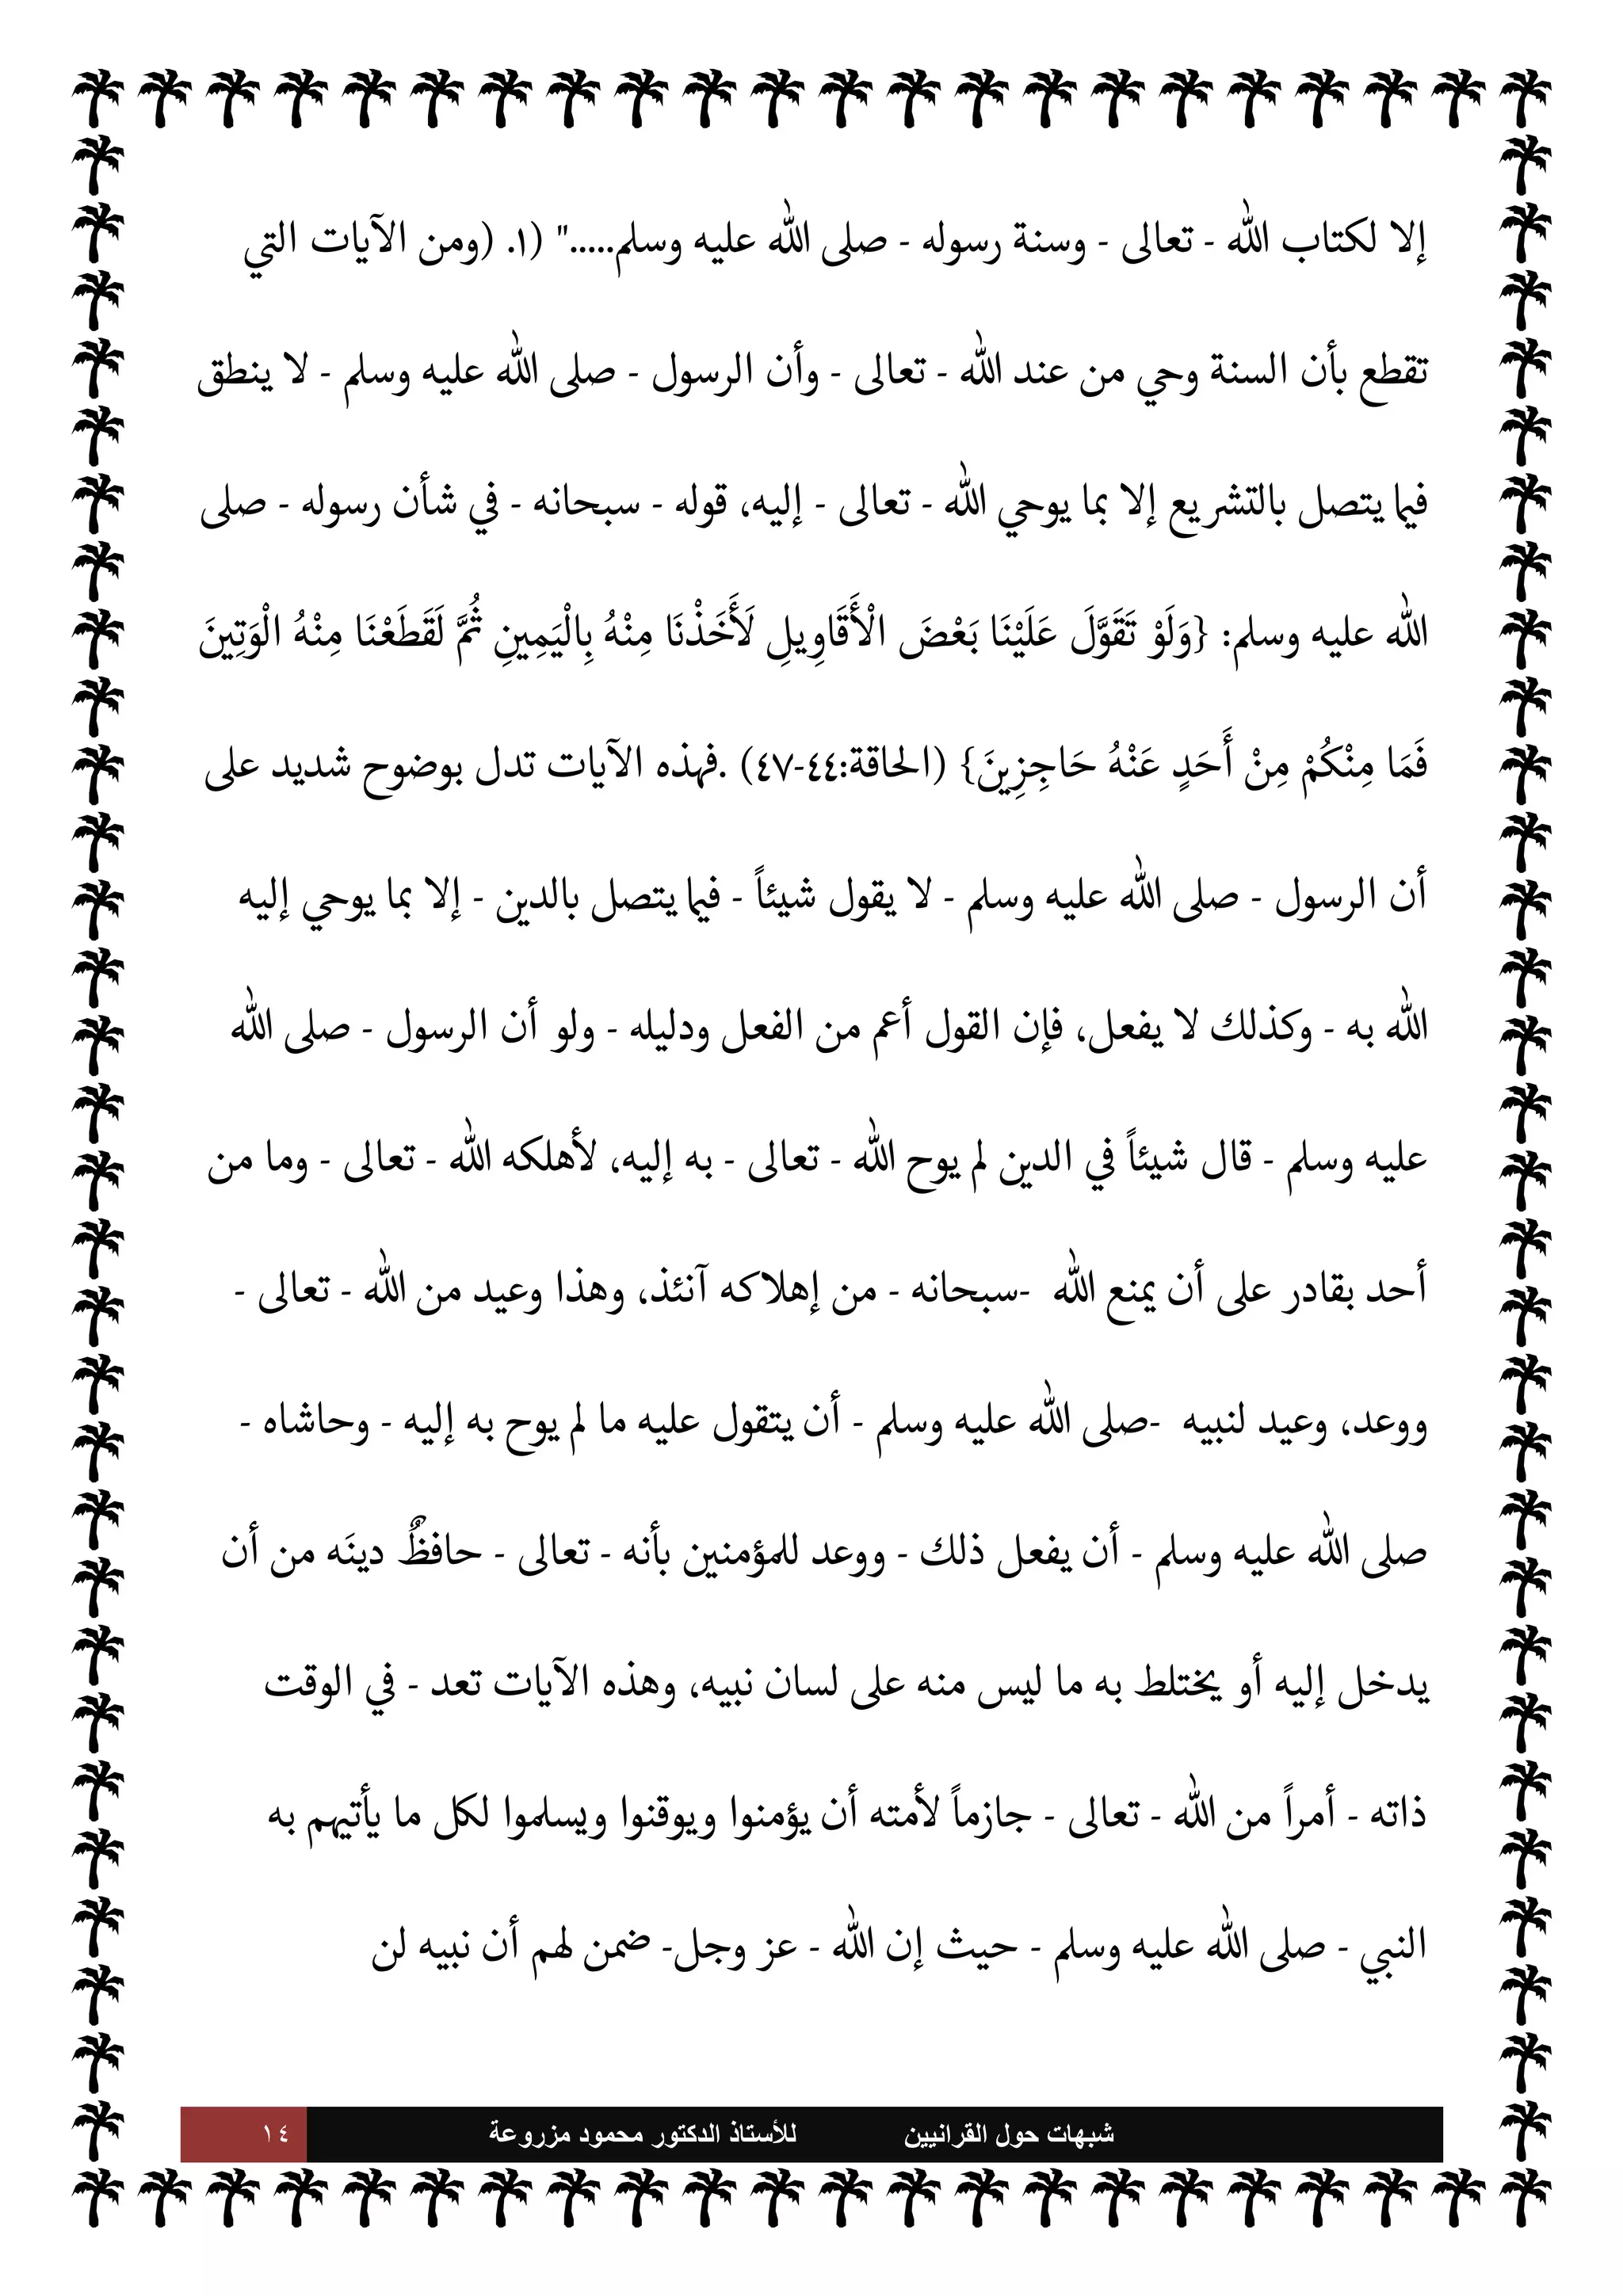 إلا لكتاب الله - تعالى - وسنة رسوله - صلى الله عليه وسلم....." (١. (ومن الآيات التي
تقطع بأن السنة وحي من عند الله - تعالى - وأن الرسول - صلى الله عليه وسلم - لا ينطق
فيما يتصل بالتشريع إلا بما يوحي الله - تعالى - إليه، قوله - سبحانه - في شأن رسوله - صلى
الله عليه وسلم: {وَلَوْ تَقَوَّلَ عَلَيْنَا بَعْضَ الْأَقَاوِيلِ لَأَخَذْنَا مِنْهُ بِالْيَمِينِ ثُمَّ لَقَطَعْنَا مِنْهُ الْوَتِينَ
فَمَا مِنْكُمْ مِنْ أَحَدٍ عَنْهُ حَاجِزِينَ} (الحاقة:٤٤-٤٧) .فهذه الآيات تدل بوضوح شديد على
أن الرسول - صلى الله عليه وسلم - لا يقول شيئاً - فيما يتصل بالدين - إلا بما يوحي إليه
الله به - وكذلك لا يفعل، فإن القول أعم من الفعل ودليله - ولو أن الرسول - صلى الله
عليه وسلم - قال شيئاً في الدين لم يوح الله - تعالى - به إليه، لأهلكه الله - تعالى - وما من
أحد بقادر على أن يمنع الله -سبحانه - من إهلاكه آنئذ، وهذا وعيد من الله - تعالى -
ووعد، وعيد لنبيه -صلى الله عليه وسلم - أن يتقول عليه ما لم يوح به إليه - وحاشاه -
صلى الله عليه وسلم - أن يفعل ذلك - ووعد للمؤمنين بأنه - تعالى - حافظٌ دينَه من أن
يدخل إليه أو يختلط به ما ليس منه على لسان نبيه، وهذه الآيات تعد - في الوقت
ذاته - أمراً من الله - تعالى - جازماً لأمته أن يؤمنوا ويوقنوا ويسلموا لكل ما يأتيهم به
النبي - صلى الله عليه وسلم - حيث إن الله - عز وجل- ضمن لهم أن نبيه لن
شبهات حول القرانيين للأستاذ الدكتور محمود مزروعة ١٤